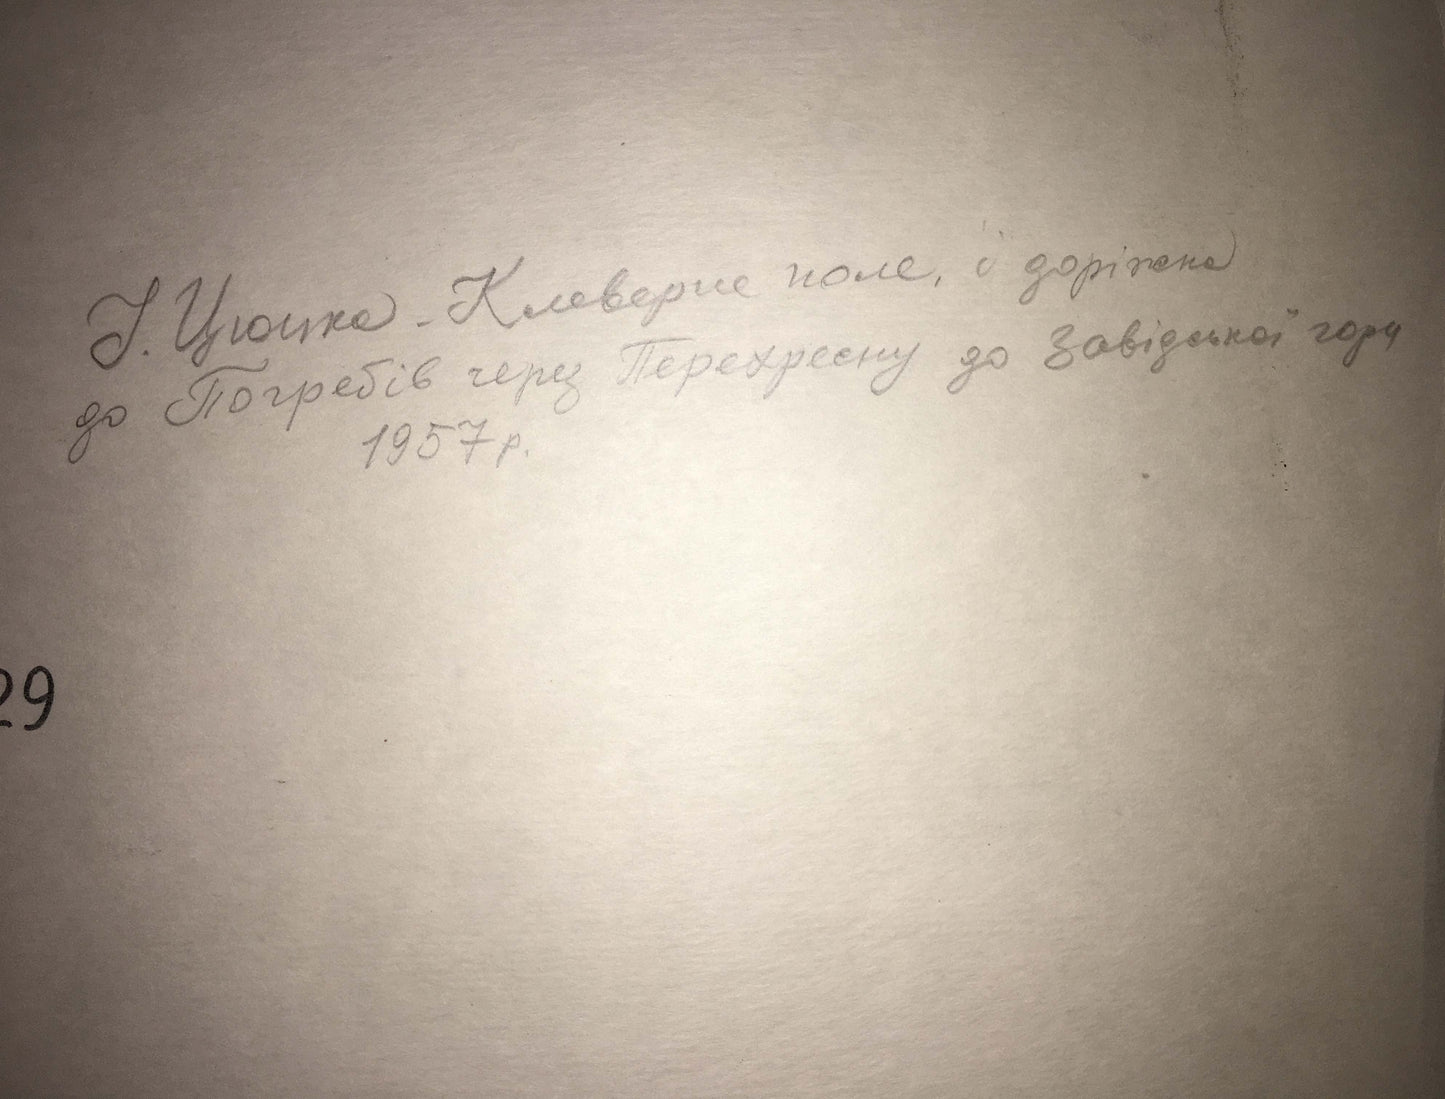 І. Цюпка - Клеверне поле, й доріжка
до Погребів через Перехресну до Завідської гори
1957 р.
29